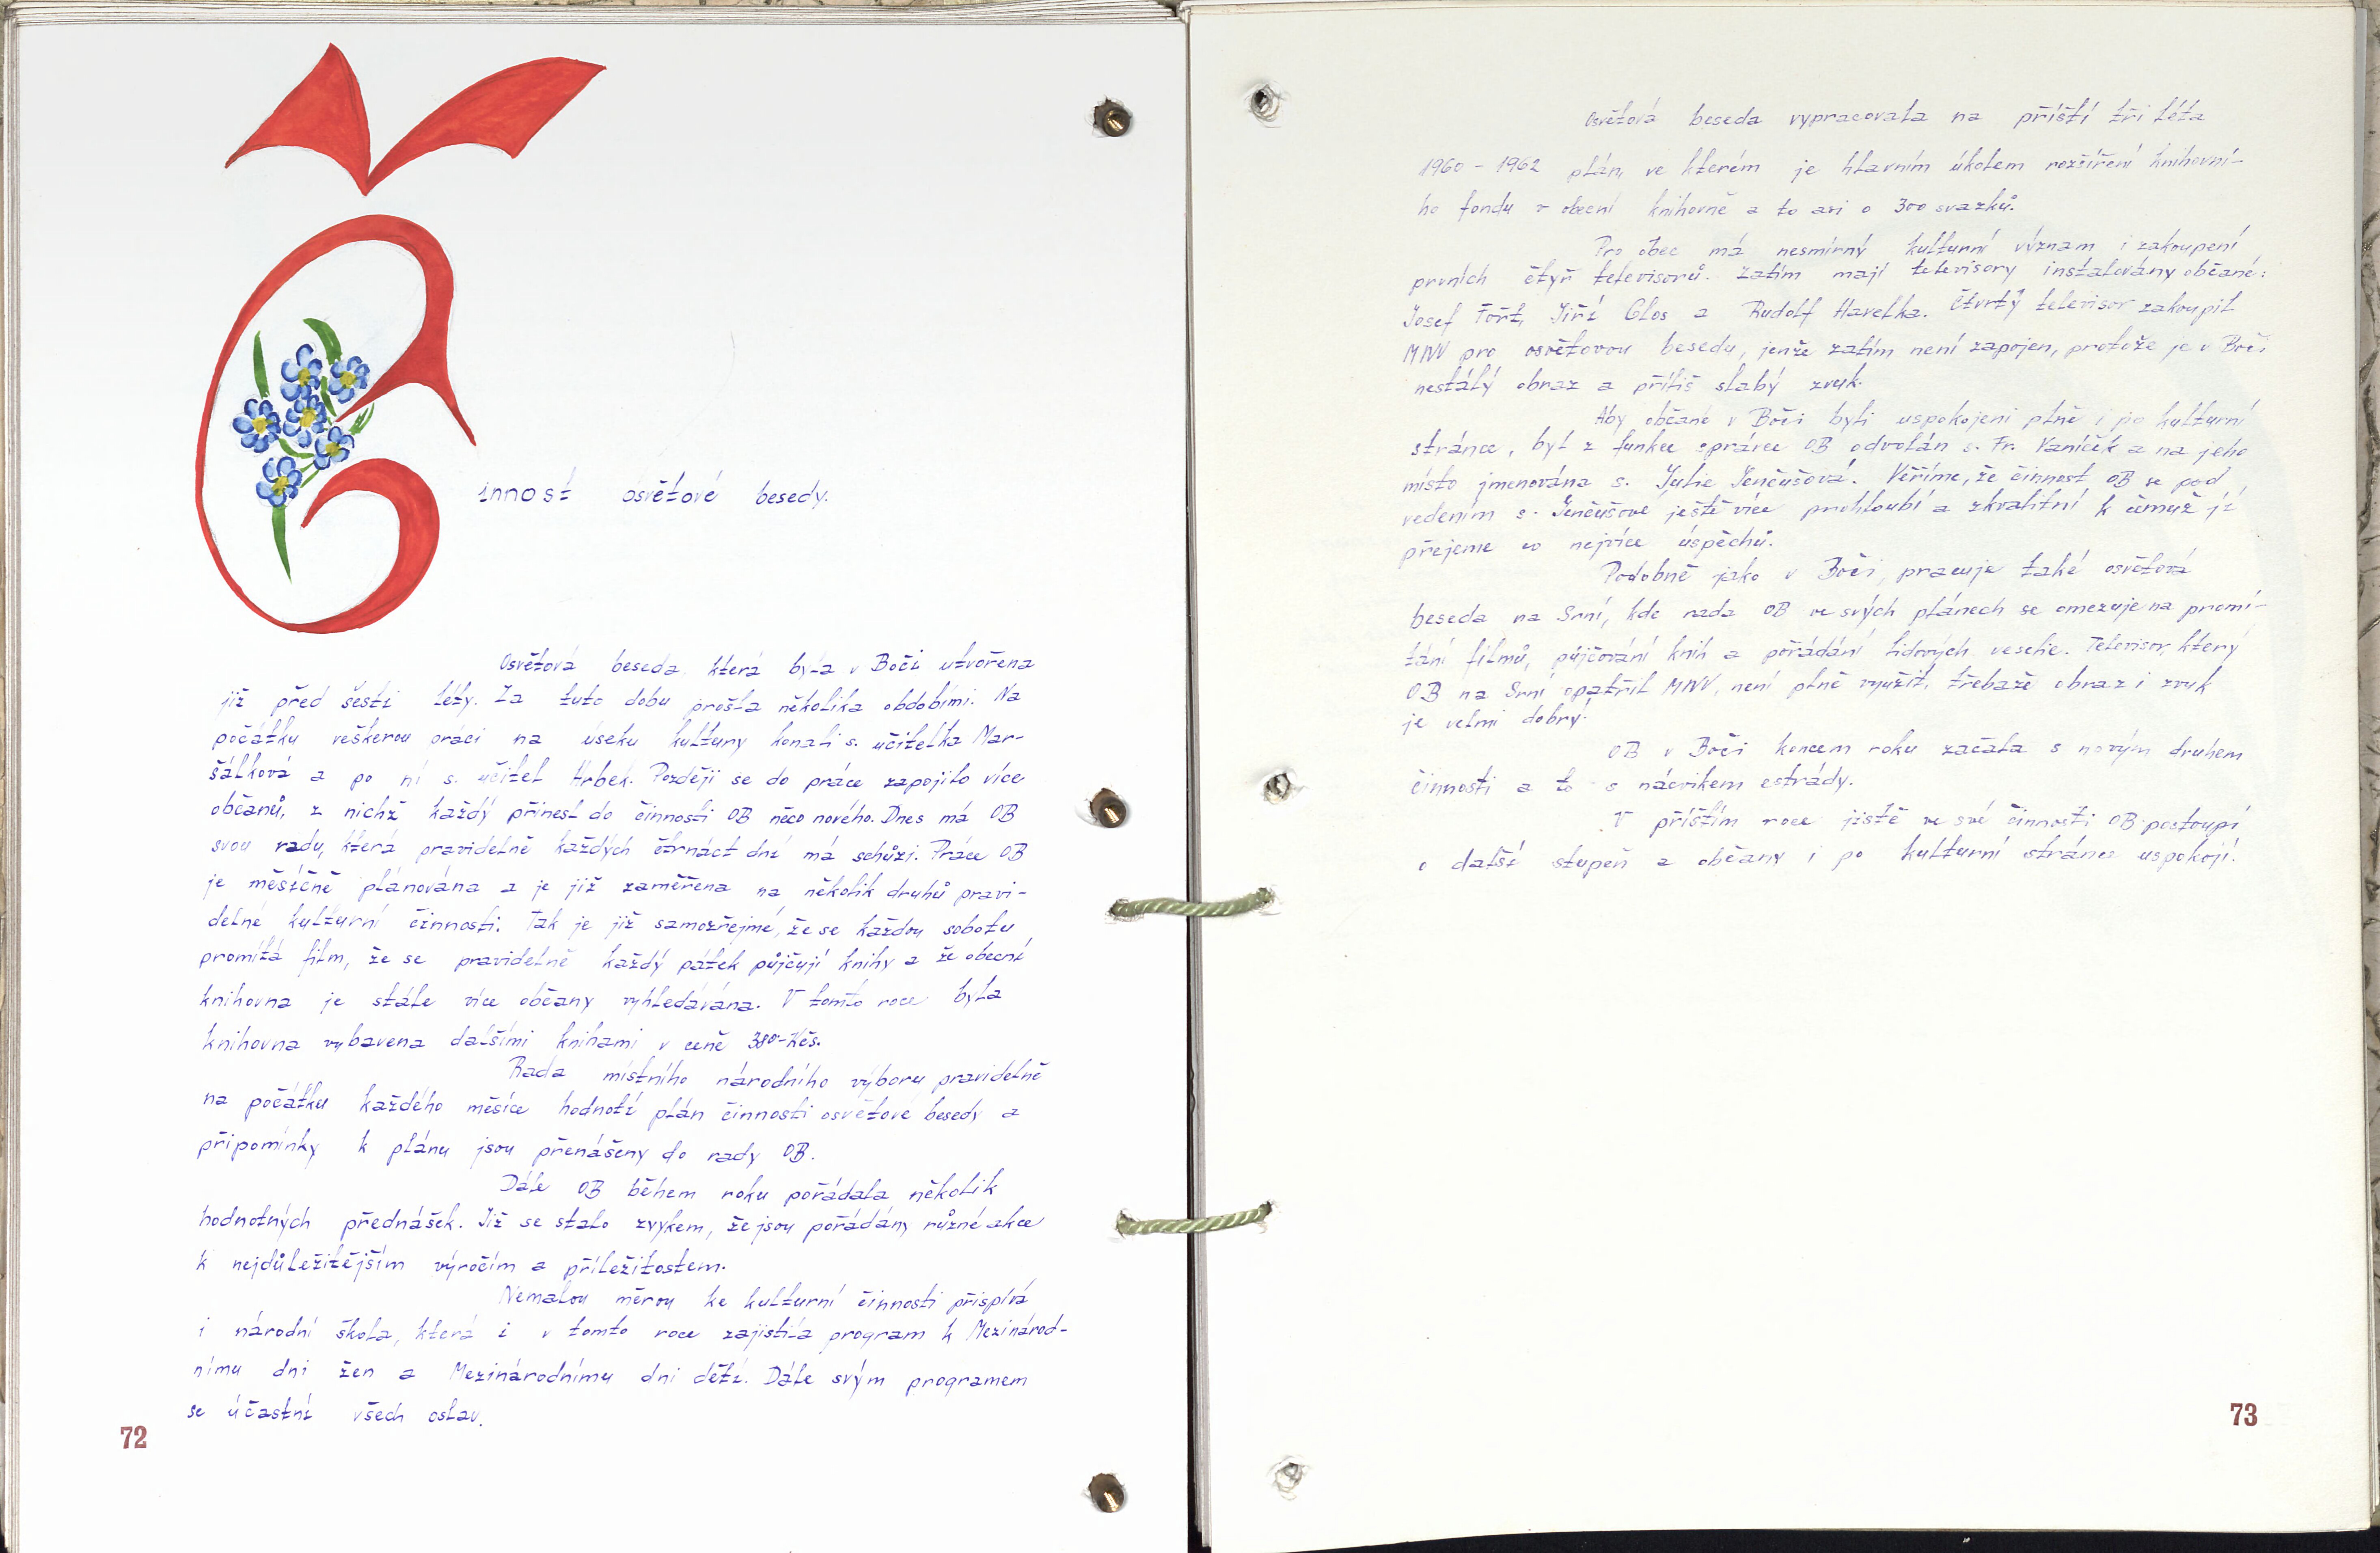 Činnost osvětové besedy.
Osvětová beseda, která byla v Boči utvořena
již před šesti léty. Za tuto dobu prošla několika obdobími. Na
počátku veškerou práci na úseku kultury konali s. učitelka Nar-
šálková a po ní s. učitel Hrbek. Později se do práce zapojilo více
občanů, z nichž každý přinesl do činnosti OB něco nového. Dnes má OB
svou radu, která pravidelně každých čtrnáct dní má schůzi. Práce OB
je měsíčně plánována a je již zaměřena na několik druhů pravi-
delné kulturní činnosti. Tak je již samozřejmé, že se každou sobotu
promítá film, že se pravidelně každý pátek půjčují knihy a že obecní
knihovna je stále více občany vyhledávána. V tomto roce byla
knihovna vybavena dalšími knihami v ceně 380-Kčs.
Rada místního národního výboru pravidelně
na počátku každého měsíce hodnotí plán činnosti osvětové besedy a
připomínky k plánu jsou přenášeny do rady OB.
Dále OB během roku pořádala několik
hodnotných přednášek. Již se stalo zvykem, že jsou pořádány různé akce
k nejdůležitějším výročím a příležitostem.
Nemalou měrou ke kulturní činnosti přispívá
i národní škola, která i v tomto roce zajistila program k Mezinárod-
nímu dni žen a Mezinárodnímu dni dětí. Dále svým programem
se účastní všech oslav.
72
Osvětová beseda vypracovala na příští tři léta
1960 - 1962 plán, ve kterém je hlavním úkolem rozšíření knihovní-
ho fondu v obecní knihovně a to asi o 300 svazků.
Pro obec má nesmírný kulturní význam i zakoupení
prvních čtyř televisorů. Zatím mají televisory instalovány občané:
Josef Fořt, Jiří Glos a Rudolf Havelka. Čtvrtý televisor zakoupil
MNV pro osvětovou besedu, jenže zatím není zapojen, protože je v Boči
nestálý obraz a příliš slabý zvuk.
Aby občané v Boči byli uspokojeni plně i po kulturní
stránce, byl z funkce správce OB odvolán s. Fr. Vaníček a na jeho
místo jmenována s. Julie Jenčušová. Věříme, že činnost OB se pod
vedením s. Jenčušové ještě více prohloubí a zkvalitní k čemuž jí
přejeme co nejvíce úspěchů.
Podobně jako v Boči, pracuje také osvětová
beseda na Srní, kde rada OB ve svých plánech se omezuje na promí-
tání filmů, půjčování knih a pořádání lidových veselic. Televisor, který
OB na Srní opatřil MNV, není plně využit, třebaže obraz i zvuk
je velmi dobrý.
OB v Boči koncem roku začala s novým druhem
činnosti a to s nácvikem estrády.
V příštím roce jistě ve své činnosti OB postoupí
o další stupeň a občany i po kulturní stránce uspokojí.
73